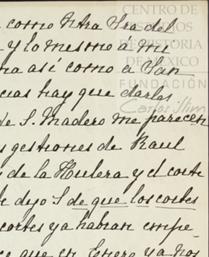 como Ntra Sra del
y lo mesmo a mi
así como a San
cias hay que darles
de S. Madero me parecen
gestiones de Raul
de la Hulera y el corte
dejo S de que los cortes
cortes ya habian empe-
que en Enero ya nos
CENTRO DE
ESTUDIOS
DE HISTORIA
DE MÉXICO
FUNDACIÓN
Carlos Slim